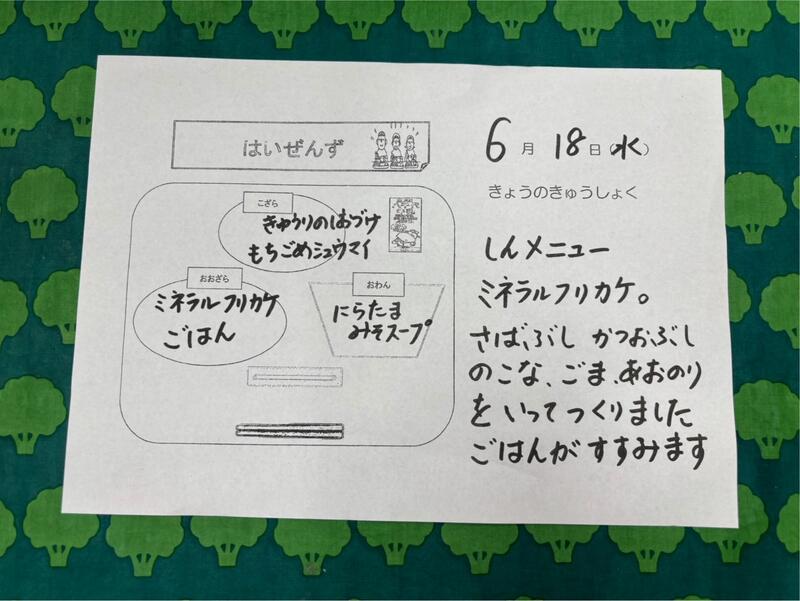 はいぜんず
こざら
きゅうりのしおづけ
もちごめシュウマイ
おおざら
ミネラルフリカケ
ごはん
おわん
にらたま
みそスープ
6月18日(水)
きょうのきゅうしょく
しんメニュー
ミネラルフリカケ。
さば、ぶし かつおぶし
のこな、ごま、あおのり
をいってつくりました
ごはんがすすみます